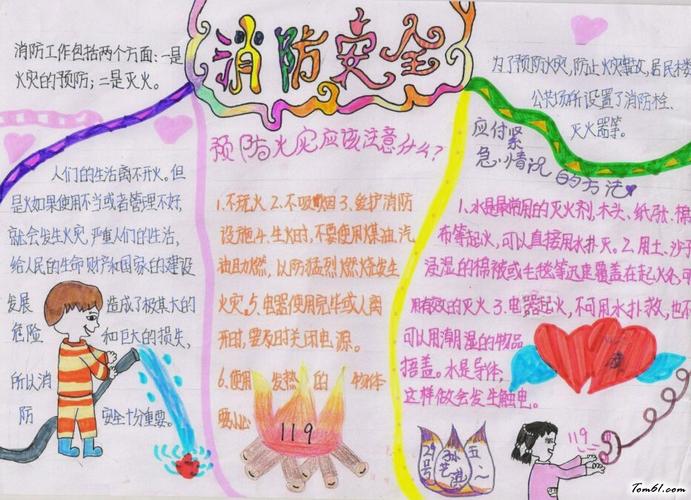 消防安全
消防工作包括两个方面:一是
火灾的预防;二是灭火。
人们的生活离不开火。但
是火如果使用不当或者管理不好,
就会发生火灾,严重人们的生活,
给人民的生命财产和国家的建设
发展 造成了极其大的
危险 和巨大的损失,
所以消
防 安全十分重要。
预防火灾应该注意什么?
1.不玩火2.不吸烟3.爱护消防
设施4.生火时,不要使用煤油,汽
油且力燃,以防猛烈燃烧发生
火灾5.电器使用完毕或人离
开时,要及时关闭电源。
6.使用 发热 的 物体
要小心
119
为了预防火灾,防止火灾事故,居民楼
公共场所设置了消防栓、
灭火器等。
应付紧
急情况的方法
1.水是最常用的灭火剂,木头、纸张、棉
布等起火,可以直接用水扑灭。2.用土、沙子
浸湿的棉被或毛毯等迅速覆盖在起火处,可
用有效的灭火3.电器起火,不可用水扑救,也不
可以用潮湿的物品
捂盖。水是导体,
这样做会发生触电。
29号
五一
119
Tom61.com